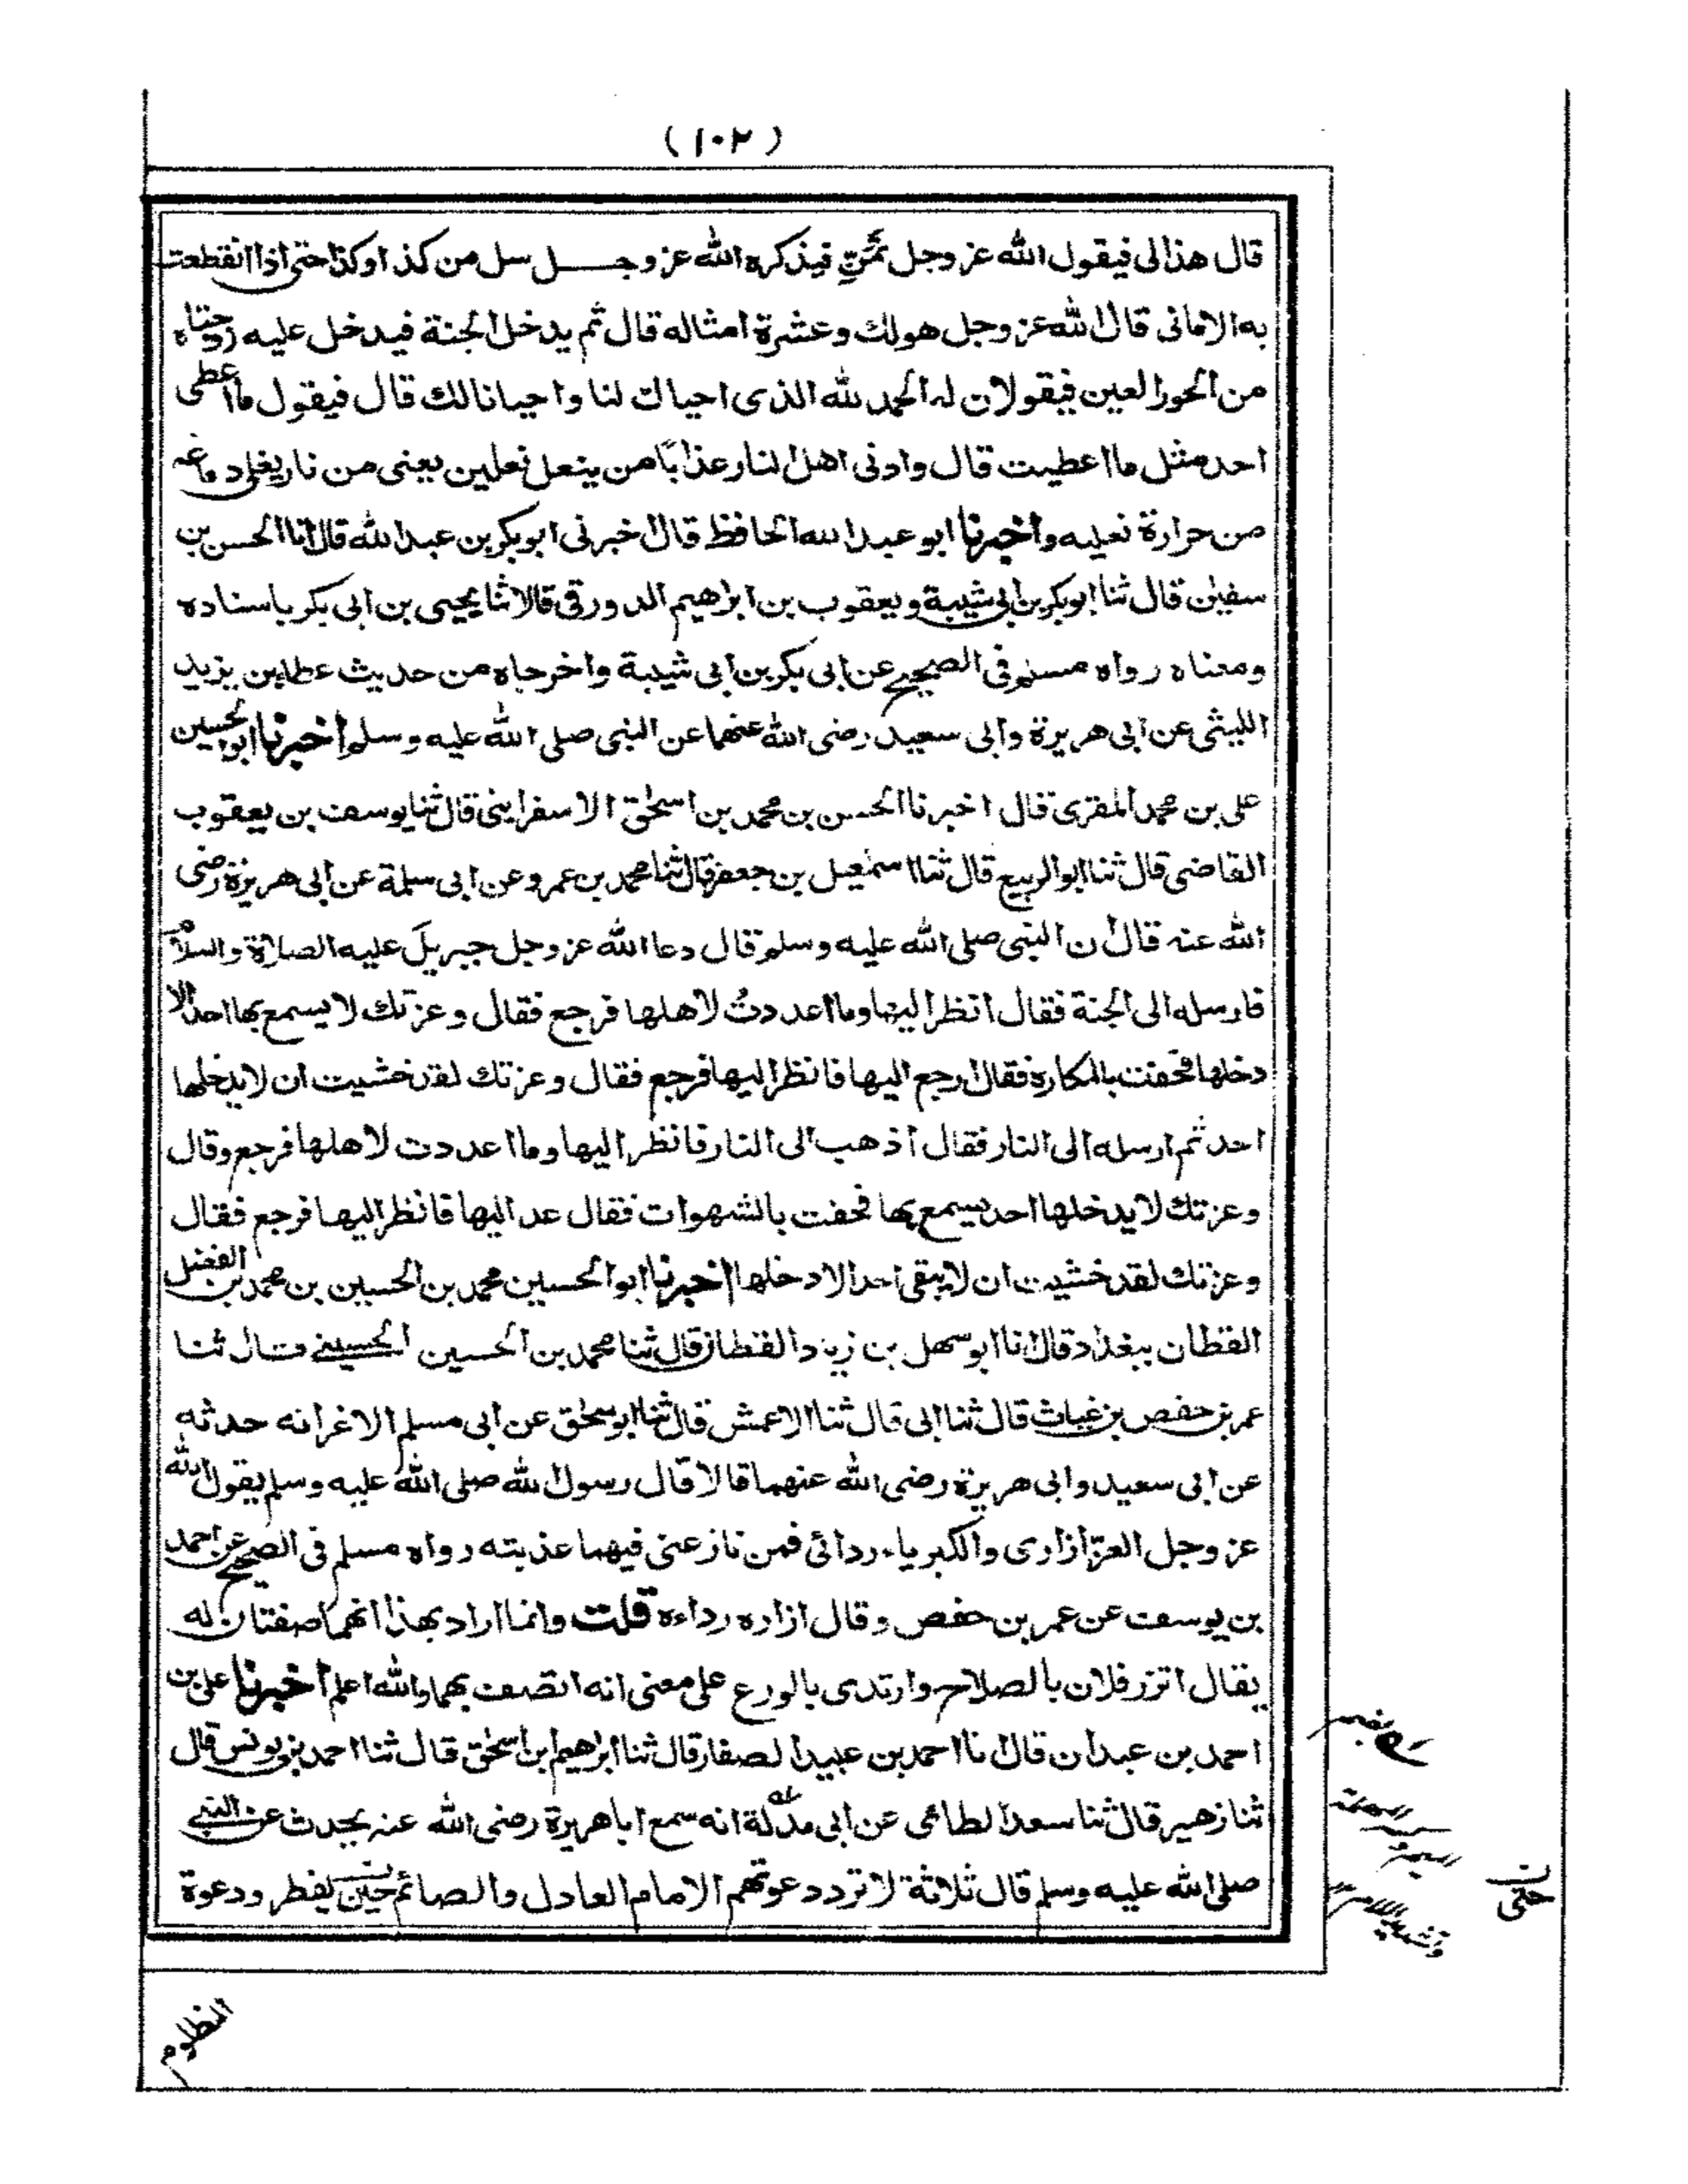 (١٠٢)
قال هذا لى فيقول الله عز وجل تمنّ فيذكره الله عز وجل سل من كذا وكذا حتى اذا انقطعت
به الامانى قال الله عز وجل هو لك وعشرة امثاله قال ثم يدخل الجنة فيدخل عليه زوجتاه
من الحور العين فيقولان له الحمد لله الذى احياك لنا واحيانا لك قال فيقول ما اعطى
احد مثل ما اعطيت قال وادنى اهل النار عذابا من ينعل نعلين يعنى من نار يغلى دماغه
من حرارة نعليه واخبرنا ابو عبد الله الحافظ قال اخبرنى ابو بكر بن عبد الله قال انا الحسن بن
سفين قال ثنا ابو بكر بن ابى شيبة ويعقوب بن ابراهيم الدورقى قالا ثنا يحيى بن ابى بكر باسناده
ومعناه رواه مسلم فى الصحيح عن ابى بكر بن ابى شيبة واخرجاه من حديث عطا بن يزيد
الليثى عن ابى هريرة وابى سعيد رضى الله عنهما عن النبى صلى الله عليه وسلم اخبرنا ابو الحسين
على بن محمد المقرى قال اخبرنا الحسن بن محمد بن اسحٰق الاسفراينى قال ثنا يوسف بن يعقوب
القاضى قال ثنا ابو الربيع قال ثنا اسمٰعيل بن جعفر قال ثنا محمد بن عمرو عن ابى سلمة عن ابى هريرة رضى
الله عنه قال ان النبى صلى الله عليه وسلم قال دعا الله عز وجل جبريل عليه الصلاة والسلام
فارسله الى الجنة فقال انظر اليها وما اعددتُ لاهلها فرجع فقال وعزتك لا يسمع بها احد الا
دخلها فحفت بالمكاره فقال ارجع اليها فانظر اليها فرجع فقال وعزتك لقد خشيت ان لا يدخلها
احد ثم ارسله الى النار فقال اذهب الى النار فانظر اليها وما اعددت لاهلها فرجع وقال
وعزتك لا يدخلها احد يسمع بها فحفت بالشهوات فقال عد اليها فانظر اليها فرجع فقال
وعزتك لقد خشيت ان لا يبقى احد الا دخلها اخبرنا ابو الحسين محمد بن الحسين بن محمد بن الفضل
القطان ببغداد قال انا ابو سهل بن زياد القطان قال ثنا محمد بن الحسين الحسينى قال ثنا
عمر بن حفص بن غياث قال ثنا ابى قال ثنا الاعمش قال ثنا ابو اسحٰق عن ابى مسلم الاغر انه حدثه
عن ابى سعيد وابى هريرة رضى الله عنهما قالا قال رسول الله صلى الله عليه وسلم يقول الله
عز وجل العزّ ازارى والكبرياء ردائى فمن نازعنى فيهما عذبته رواه مسلم فى الصحيح عن احمد
بن يوسف عن عمر بن حفص وقال ازاره رداءه قلت وانما اراد بهذا انهما صفتان له
يقال اتزر فلان بالصلاح وارتدى بالورع على معنى انه اتصف بهما والله اعلم اخبرنا على بن
احمد بن عبدان قال انا احمد بن عبيد الصفار قال ثنا ابراهيم بن اسحٰق قال ثنا احمد بن يونس قال
ثنا زهير قال ثنا سعد الطائى عن ابى مدلة انه سمع ابا هريرة رضى الله عنه يحدث عن النبى
صلى الله عليه وسلم قال ثلاثة لا ترد دعوتهم الامام العادل والصائم حين يفطر ودعوة
حتى
المظلوم